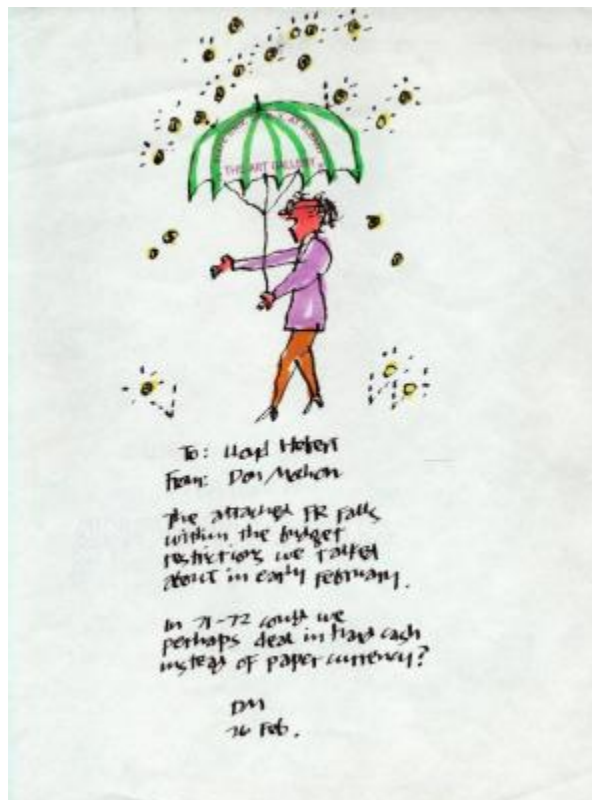 THE ART GALLERY
To: Lloyd Hebert
From: Don Mochon
The attached PR falls
within the budget
restrictions we talked
about in early February.
In 71-72 could we
perhaps deal in hard cash
instead of paper currency?
DM
Feb.